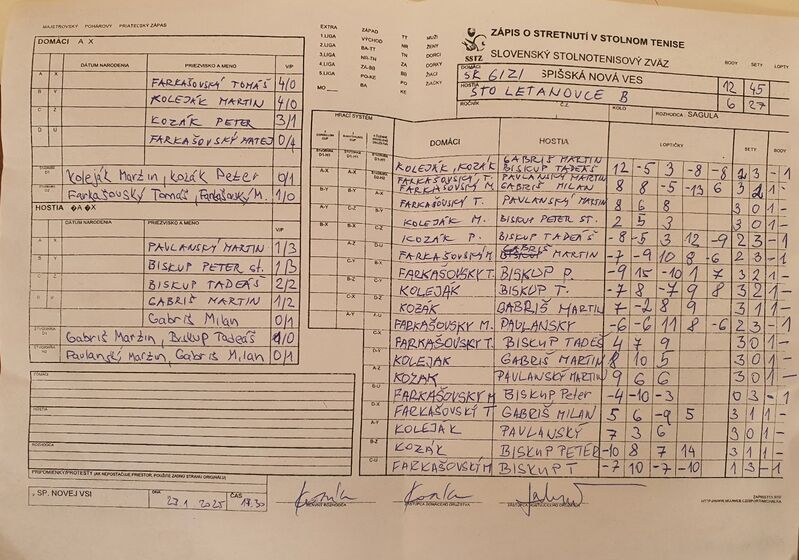 MAJSTROVSKÝ POHÁROVÝ PRIATEĽSKÝ ZÁPAS
DOMÁCI A X
DÁTUM NARODENIA PRIEZVISKO A MENO V/P
A X FARKAŠOVSKÝ TOMÁŠ 4/0
B Y KOLEJÁK MARTIN 4/0
C Z KOZÁK PETER 3/1
D U FARKAŠOVSKÝ MATEJ 0/4
Koleják Martin, Kozák Peter 0/1
Farkašovský Tomáš, Farkašovský M. 1/0
HOSTIA A X
DÁTUM NARODENIA PRIEZVISKO A MENO V/P
PAVLANSKÝ MARTIN 1/3
BISKUP PETER st. 1/3
BISKUP TADEÁŠ 2/2
GABRIŠ MARTIN 1/2
Gabriš Milan 0/1
Gabriš Martin, Biskup Tadeáš 1/0
Pavlanský Martin, Gabriš Milan 0/1
DOMÁCI
HOSTIA
ROZHODCA
PRIPOMIENKY/PROTESTY (AK NEPOSTAČUJE PRIESTOR, POUŽITE ZADNÚ STRANU ORIGINÁLU)
, SP. NOVEJ VSI DŇA 27.1 2025 ČAS 17.30
EXTRA ZÁPAD TT MUŽI
1.LIGA VÝCHOD NR ŽENY
2.LIGA BA-TT TN DORCI
3.LIGA NR-TN ZA DORKY
4.LIGA ZA-BB BB ŽIACI
5.LIGA PO-KE PO ŽIAČKY
MO BA KE
ZÁPIS O STRETNUTÍ V STOLNOM TENISE
SSTZ SLOVENSKÝ STOLNOTENISOVÝ ZVÄZ
BODY SETY LOPTY
DOMÁCI SK 6121 SPIŠSKÁ NOVÁ VES 12 45
HOSTIA STO LETANOVCE B 6 27
ROČNÍK Č.Z. KOLO ROZHODCA: SAGULA
HRACÍ SYSTÉM DOMÁCI HOSTIA LOPTIČKY SETY BODY
KOLEJÁK, KOZÁK GABRIŠ MARTIN BISKUP TADEÁŠ 12 -5 3 -8 -8 2 3 - 1
FARKAŠOVSKÝ T. FARKAŠOVSKÝ M. PAVLANSKÝ MARTIN GABRIŠ MILAN 8 8 -5 -13 6 3 2 1 -
FARKAŠOVSKÝ T. PAVLANSKÝ MARTIN 8 6 8 3 0 1 -
KOLEJÁK M. BISKUP PETER ST. 2 5 3 3 0 1 -
KOZÁK P. BISKUP TADEÁŠ -8 -5 3 12 -9 2 3 - 1
FARKAŠOVSKÝ M GABRIŠ -7 -9 10 8 -6 2 3 - 1
FARKAŠOVSKÝ T. BISKUP P. -9 15 -10 1 7 3 2 1 -
KOLEJÁK BISKUP T. -7 8 -7 9 8 3 2 1 -
KOZÁK GABRIŠ MARTIN 7 -2 8 9 3 1 1 -
FARKAŠOVSKY M. PAVLANSKY -6 -6 11 8 -6 2 3 - 1
FARKAŠOVSKÝ T. BISKUP TADEÁŠ 4 7 9 3 0 1 -
KOLEJAK GABRIŠ MARTIN 8 10 5 3 0 1 -
KOZAK PAVLANSKÝ MARTIN 9 6 6 3 0 1 -
FARKAŠOVSKY M BISKUP Peter -4 -10 -3 0 3 - 1
FARKAŠOVSKÝ T. GABRIŠ MILAN 5 6 -9 5 3 1 1 -
KOLEJAK PAVLANSKÝ 7 3 6 3 0 1 -
KOZÁK BISKUP PETER -10 8 7 14 3 1 1 -
FARKAŠOVSKÝ M BISKUP T -7 10 -7 -10 1 3 - 1